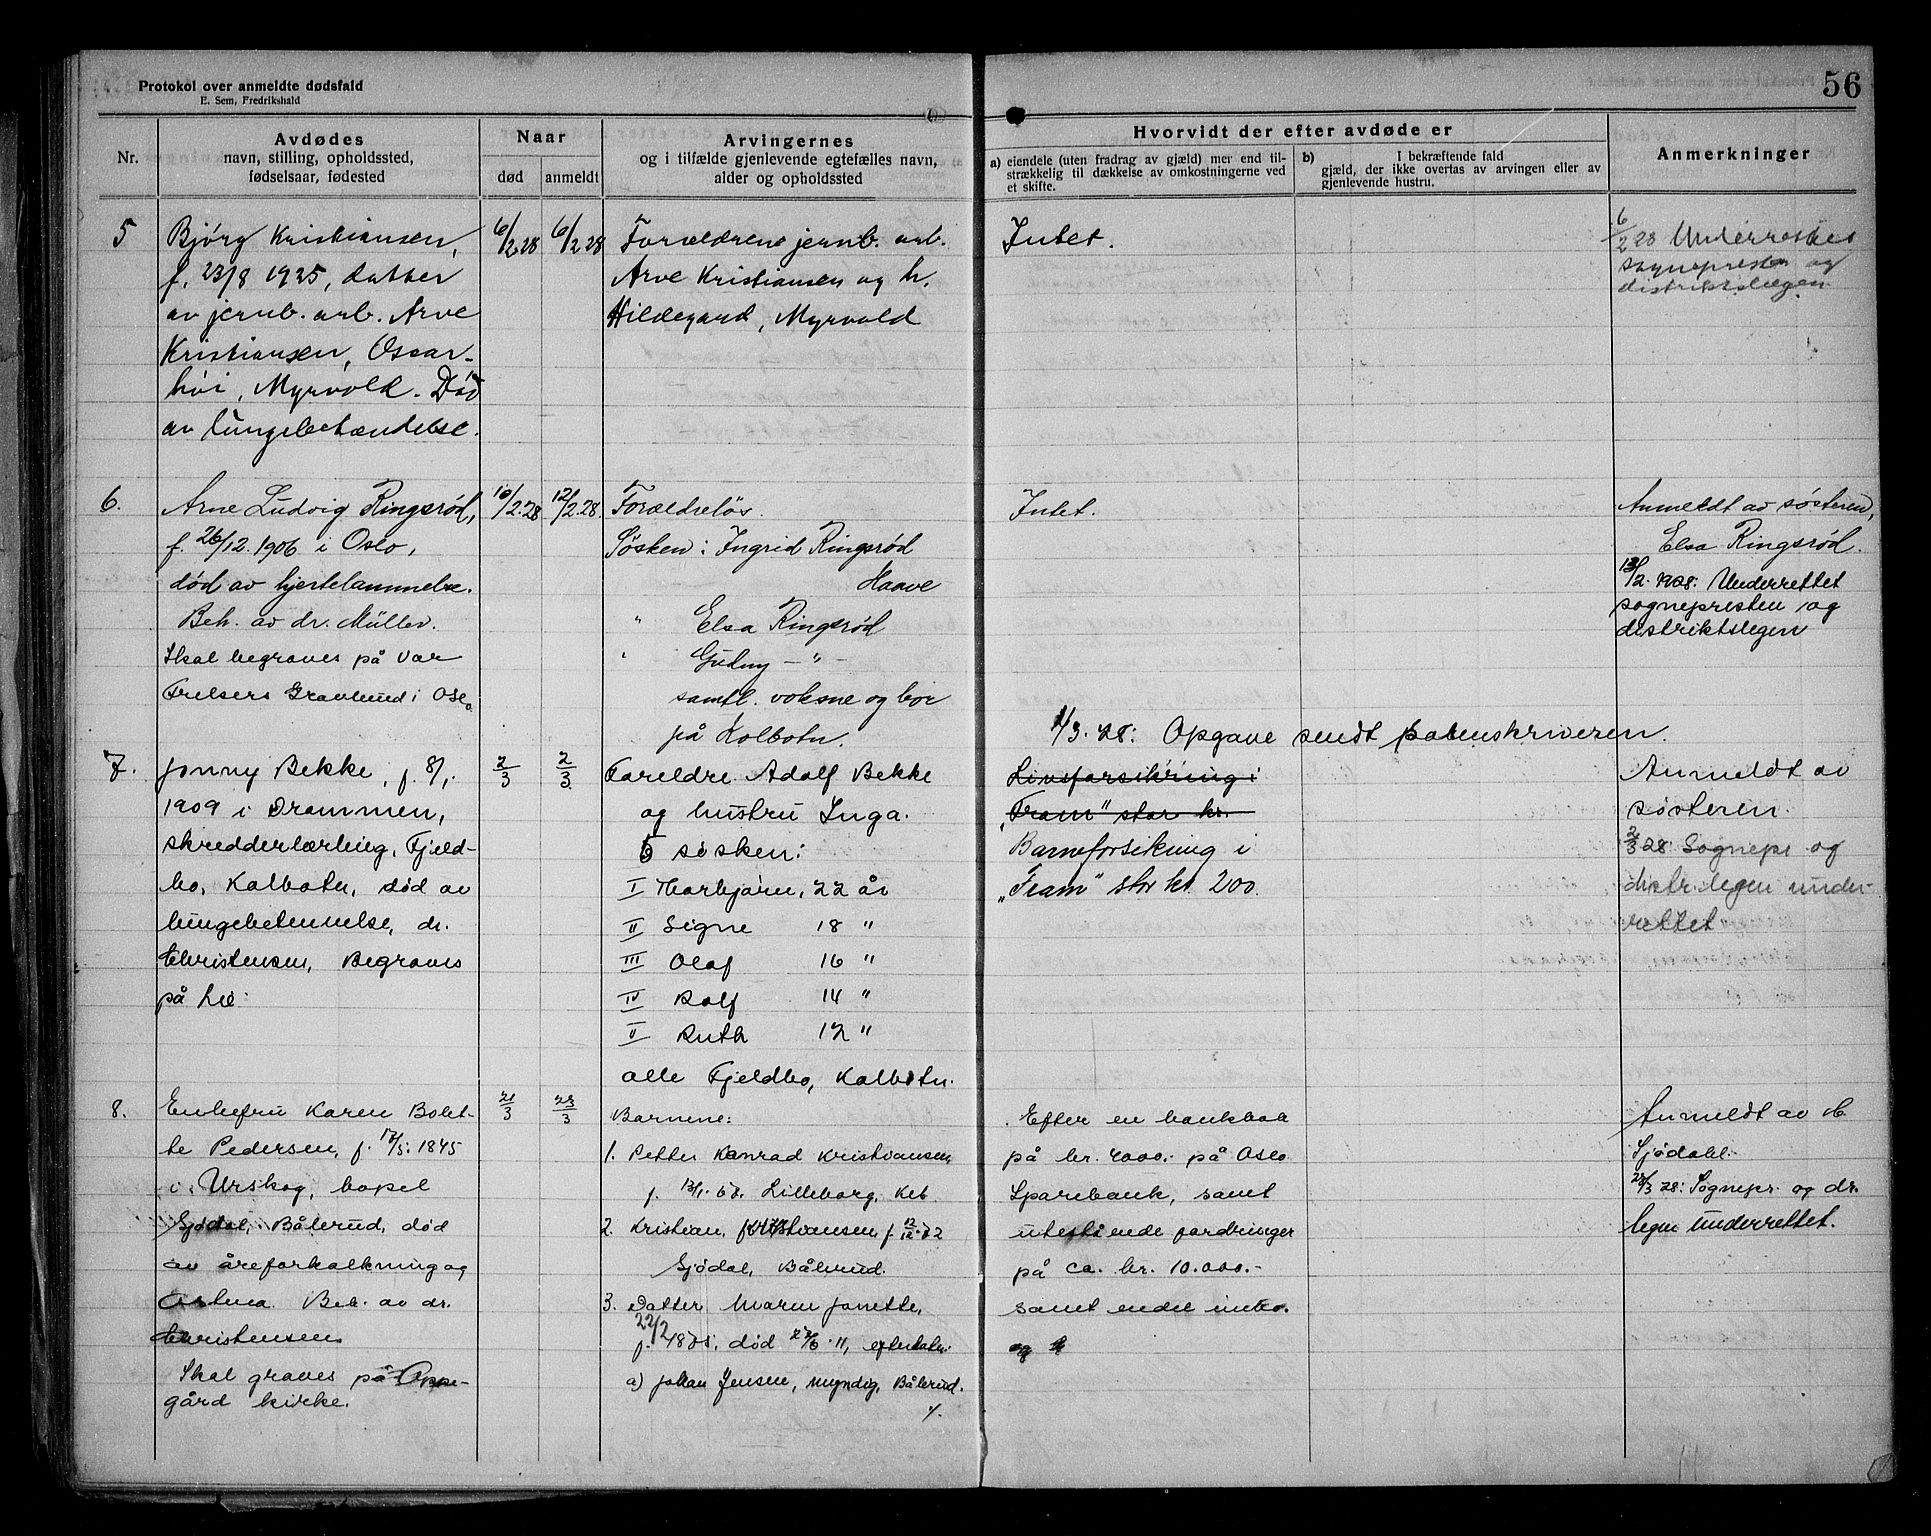 Protokol over anmeldte dødsfald
E. Sem, Fredrikshald
56
Nr.
Avdødes
navn, stilling, opholdssted,
fødselsaar, fødested
Naar
død
anmeldt
Arvingernes
og i tilfælde gjenlevende egtefælles navn,
alder og opholdssted
Hvorvidt der efter avdøde er
a) eiendele (uten fradrag av gjæld) mer end til-
strækkelig til dækkelse av omkostningerne ved
et skifte.
b) I bekræftende fald
gjæld, der ikke overtas av arvingen eller av
gjenlevende hustru.
Anmerkninger
5
Bjórg Kristiansen,
f. 23/8 1925, datter
av jernb. arb. Arve
Kristiansen, Oscar-
hói, Myrvold. Död
av lungebetændelse.
6/2 28
6/2 28
Forældrene jernb. arb.
Arve Kristiansen og h.
Hildegard, Myrvold
Intet.
6/2 28 Underrettet
sognepresten og
distriktslægen
6.
Arne Ludvig Ringsrød,
f. 26/12. 1906 i Oslo,
død av hjertelammelse.
Beh. av dr. Müller.
Skal begraves på Vår
Frelsers Gravlund i Oslo
10/2.28
12/2.28.
Forældreløs.
Søsken: Ingrid Ringsrød
Haave
" Elsa Ringsrød
" Gudny — " —
samtl. voksne og bor
på Kolbotn.
Intet.
Anmeldt av søsteren,
Elsa Ringsrød.
13/2. 1928: Underrettet
sognepresten og
distriktslegen
1/3. 28: Opgave sendt sorenskriveren.
7.
Jonny Bekke, f. 8/1.
1909 i Drammen,
skredderlærling, Fjeld-
bo, Kolbotn, død av
lungebetennelse, dr.
Christensen, Begraves
på
2/3
2/3.
Foreldre Adolf Bekke
og hustru Inga.
5 søsken:
I Thorbjørn, 22 år
II Signe 18 "
III Olaf 16 "
IV Rolf 14 "
V Ruth 12 "
alle Fjeldbo, Kolbotn.
Livsforsikring i
"Fram" stor kr.
Barneforsikring i
"Fram" stor kr. 200.
Anmeldt av
søsteren.
2/3 28: Sognepr og
distr.legen under-
rettet
8.
Enkefru Karen Bolet-
te Pedersen, f. 17/5. 1845
i Urskog, bopel
Sjödal, Bålerud, död
av åreforkalkning og
Astma. Beh. av dr.
Christensen
Skal graves på Oppe-
gård kirke.
21/3
23/3
Barnene:
1. Petter Konrad Kristiansen,
f. Lilleborg,
2. Kristian Kristiansen, f. 12/12
Sjödal, Bålerud.
3. Datter Maren Janette,
f. 22/2 1875, død 11, efterlater
a) Johan Jensen, myndig, Bålerud.
./.
Efter en bankbok
på kr. 4000.- på Oslo
Sparebank, samt
utestående fordringer
på ca. kr. 10.000.-
samt endel innbo.
og
Anmeldt av
Sjödahl.
23/3 28: Sognepr. og dr.
legen underrettet.